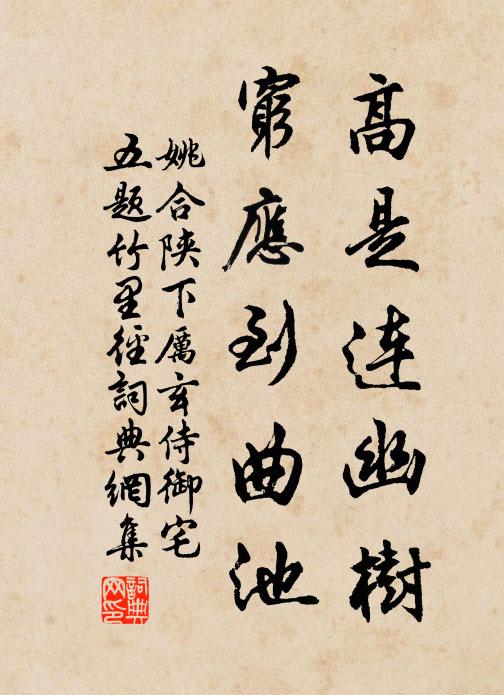 高是连幽樹
窮應到曲池
姚合陕下厲玄侍御宅
五题竹里徑詞典網集
詞典網印